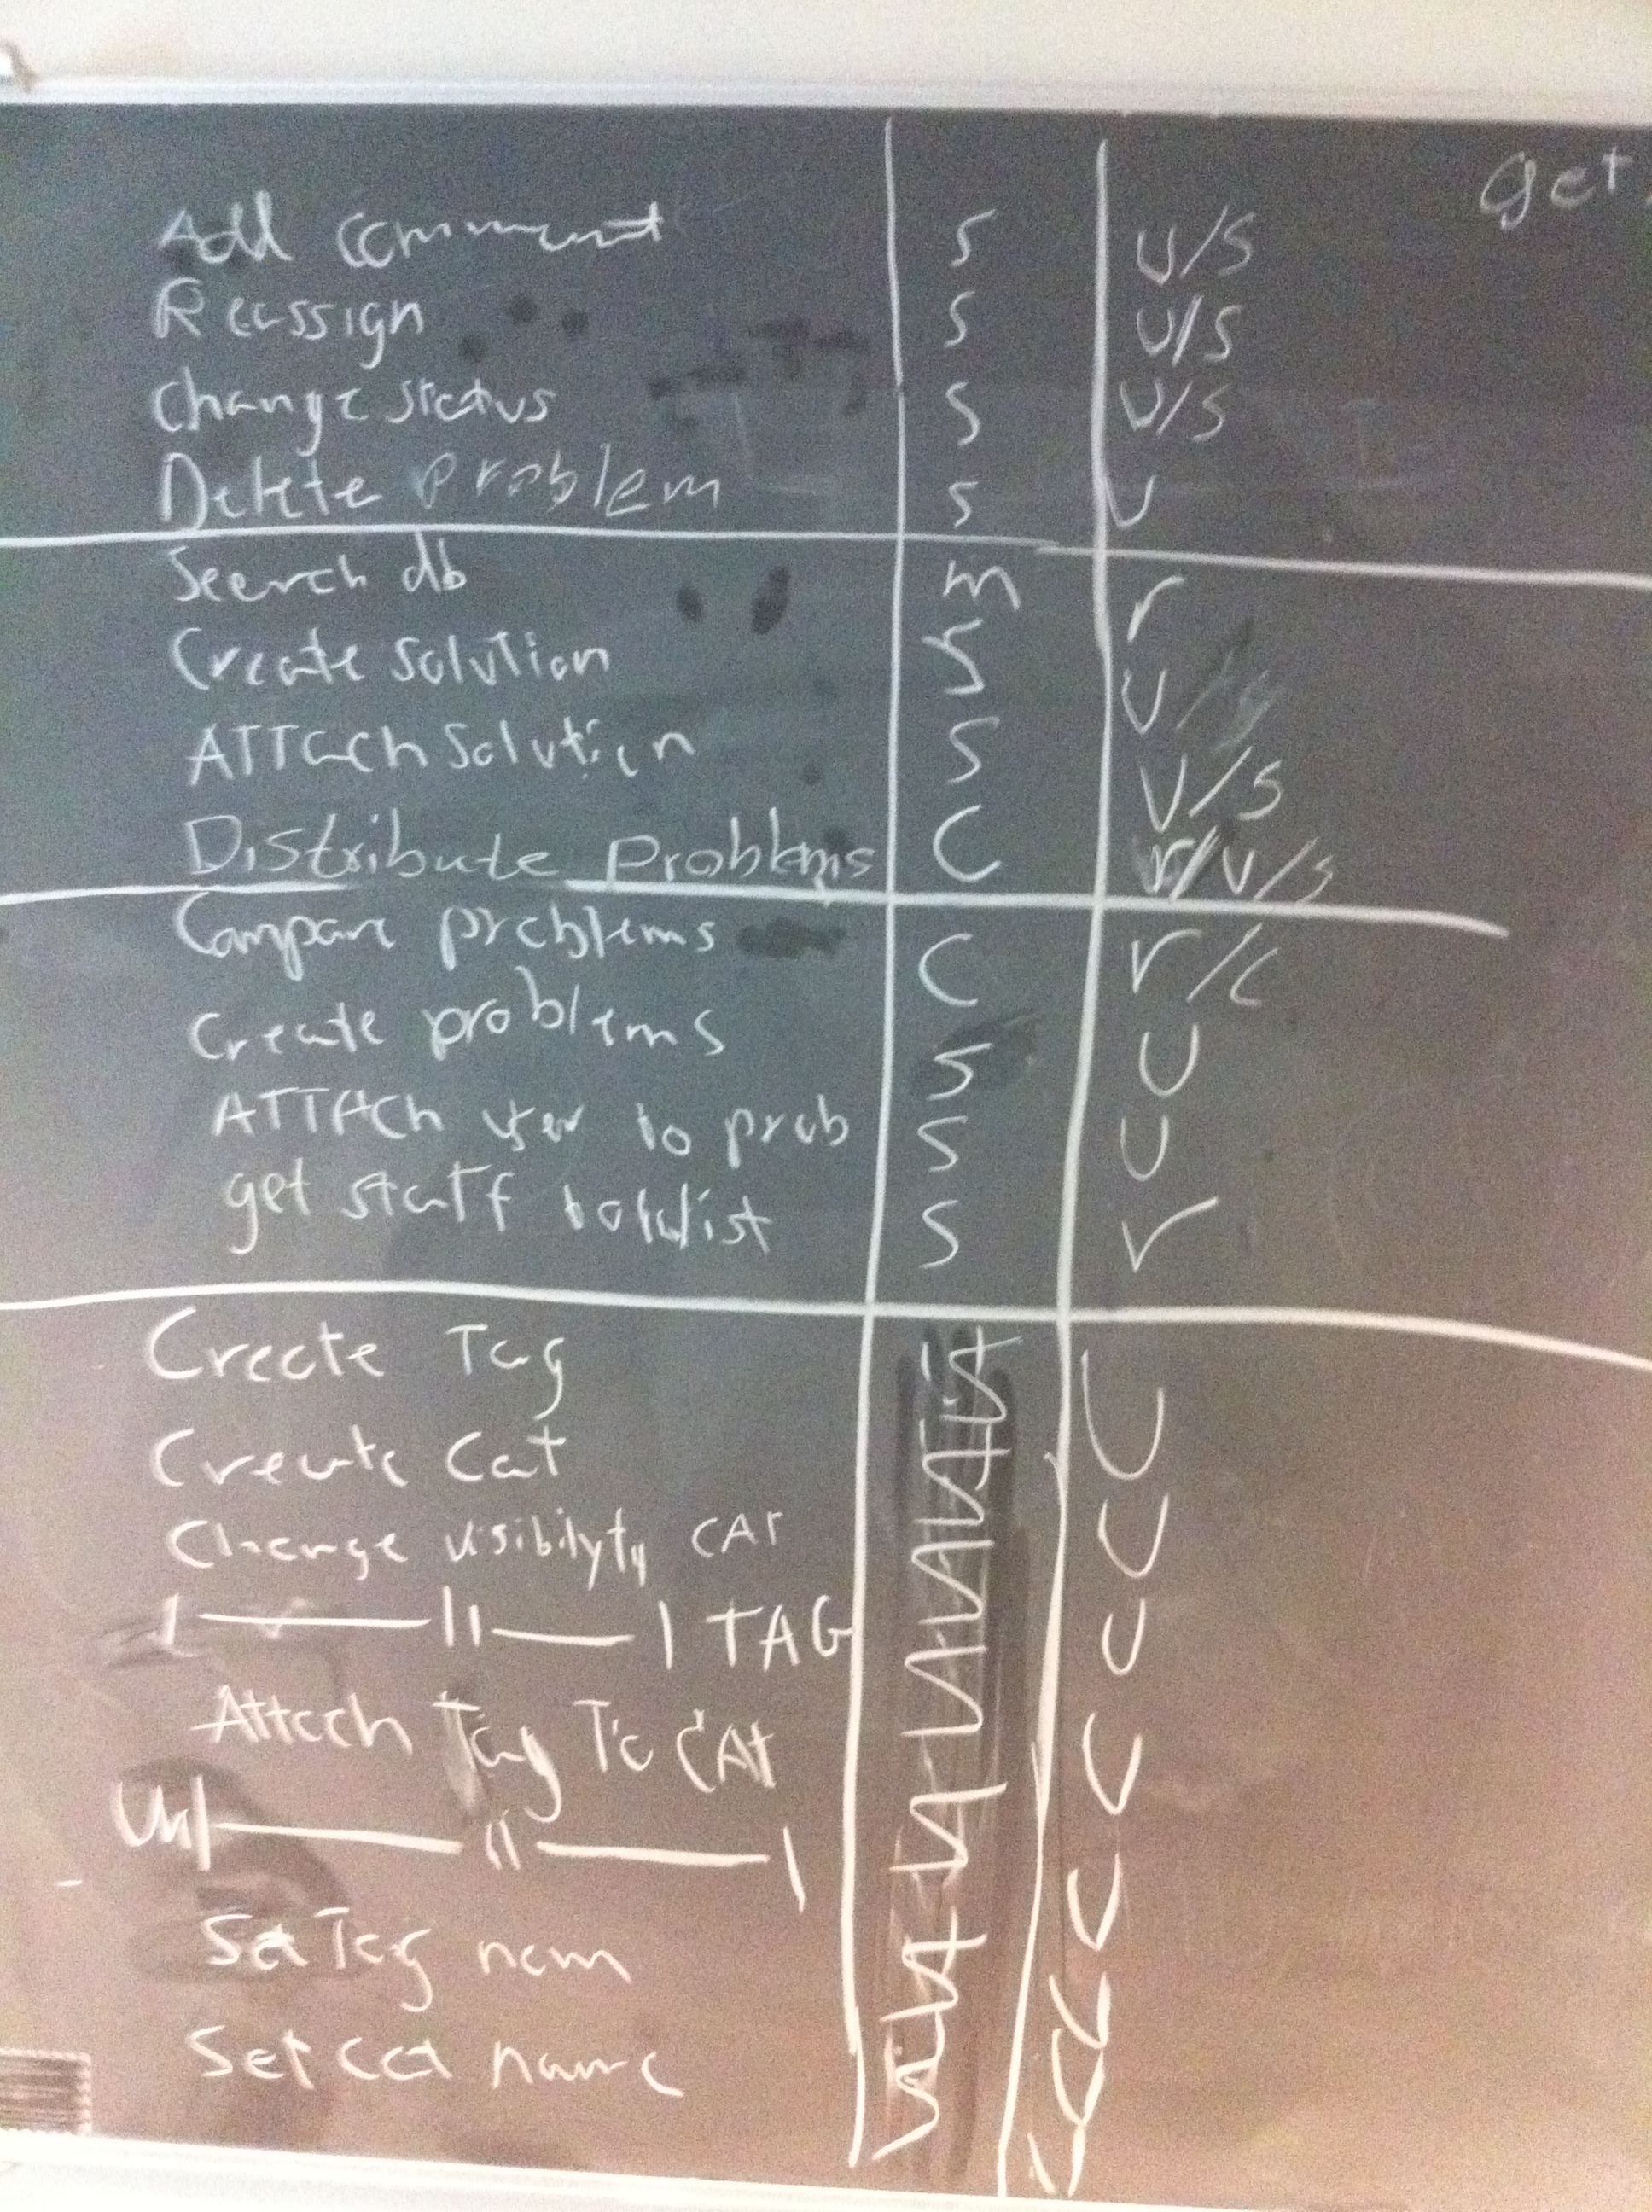 get
Add comment s u/s
Reassign s u/s
change status s u/s
Delete problem s u
Search db m r
Create solution s u/
ATTach solution s u/s
Distribute problems C r/u/s
Compare problems C r/c
Create problems s U
ATTACh user to prob s U
get staff worklist s r
Create Tag U
Create Cat U
Change visibilyty CAT U
|——||——| TAG U
Attach Tag To CAt U
Un|——||——|
Set Tag nam
Set cat name